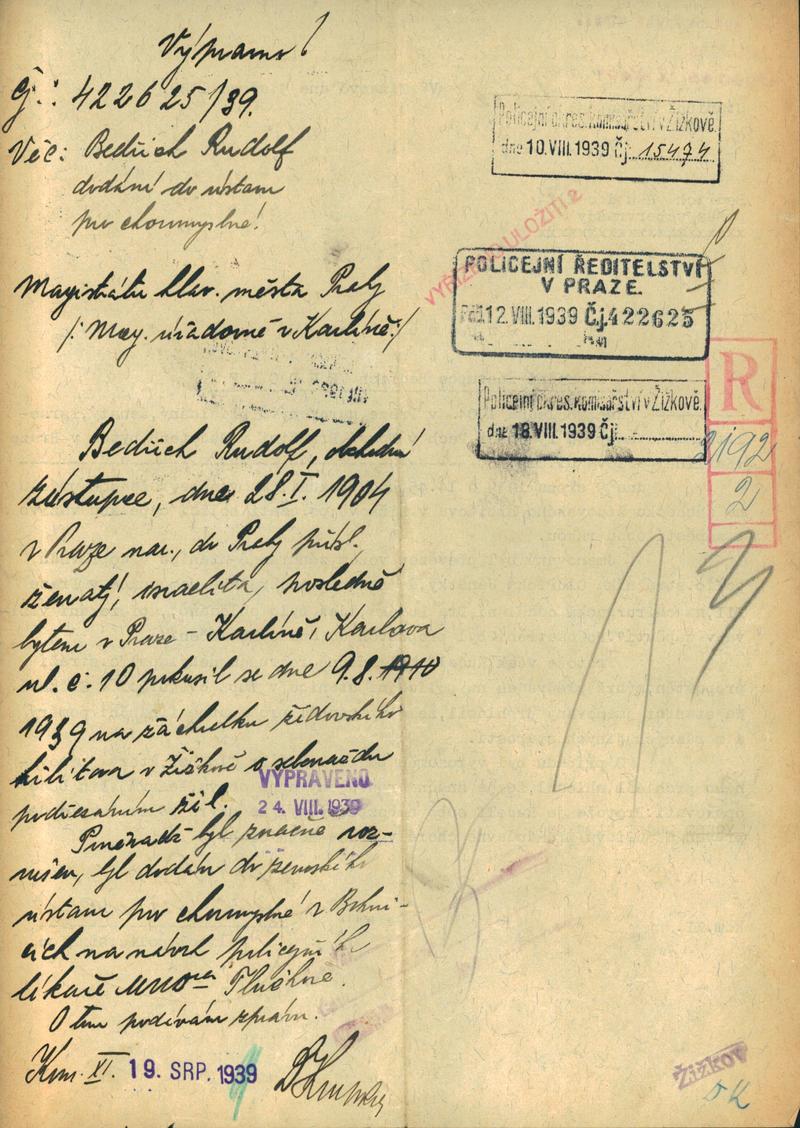 Výpravna!
Čj.: 422625/39.
Věc: Bedřich Rudolf
dodání do ústavu
pro choromyslné!
Policejní okres. komisařství v Žižkově.
dne 10.VIII.1939 Čj. 15474
VYŘÍZENO ULOŽITI 2
POLICEJNÍ ŘEDITELSTVÍ
V PRAZE.
12.VIII.1939 Čj. 422625
Magistrátu hlav. města Prahy
/: Mag. úřadovně v Karlíně :/
Policejní okres. komisařství v Žižkově.
dne 18.VIII.1939 Čj.
R
2192
2
Bedřich Rudolf, obchodní
zástupce, dne 28.I. 1904
v Praze nar., do Prahy přísl.
ženatý, israelita, posledně
bytem v Praze - Karlíně, Karlova
ul. č. 10 pokusil se dne 9.8. 1910
1939 na záchodku židovského
hřbitova v Žižkově o sebevraždu
podřezáním žil.
VYPRAVENO
24. VIII. 1939
Poněvadž byl značně roz-
rušen, byl dodán do zemského
ústavu pro choromyslné v Bohni-
cích na návrh policejního
lékaře MUDra
O tom podávám zprávu.
Kom. XI. 19. SRP. 1939
Žižkov